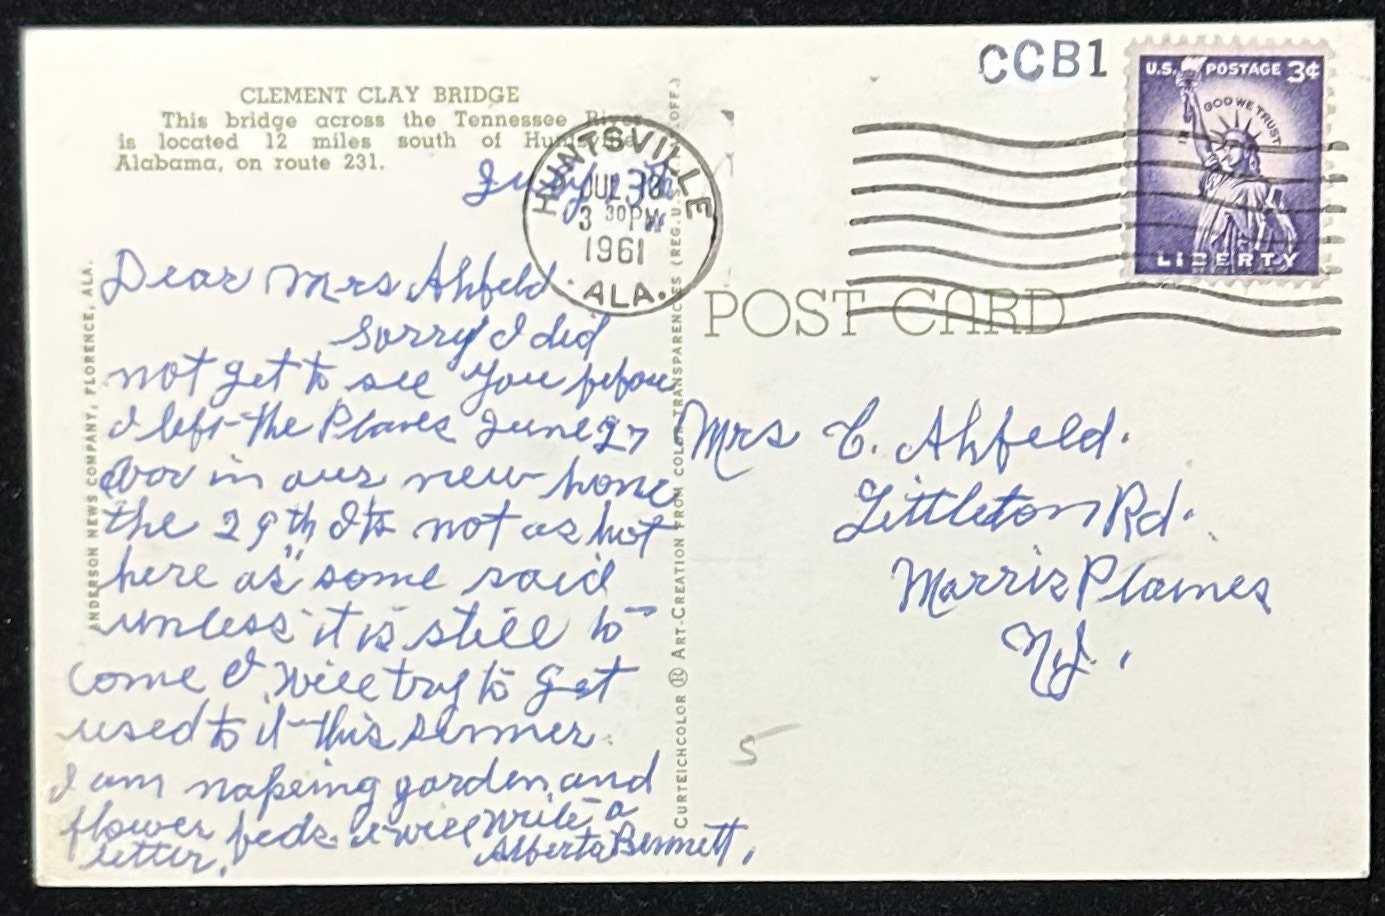 CCB1
U.S. POSTAGE 3¢
IN GOD WE TRUST
LIBERTY
CLEMENT CLAY BRIDGE
This bridge across the Tennessee River
is located 12 miles south of Huntsville,
Alabama, on route 231.
HUNTSVILLE
JUL 13
3 30 PM
1961
ALA.
July 13th
Dear Mrs Ahfeld
Sorry I did
not get to see you before
I left the Plaines June 27
in our new home
the 29th Its not as hot
here as some said
unless it is still to
come I will try to get
used to it this summer.
I am making garden and
flower beds. I will write a
letter.
Alberta Bennett,
POST CARD
Mrs C. Ahfeld.
Littleton Rd.
Morris Plaines
N.J.
5
ANDERSON NEWS COMPANY, FLORENCE, ALA.
CURTEICHCOLOR ® ART-CREATION FROM COLOR TRANSPARENCIES (REG. U.S. OFF.)